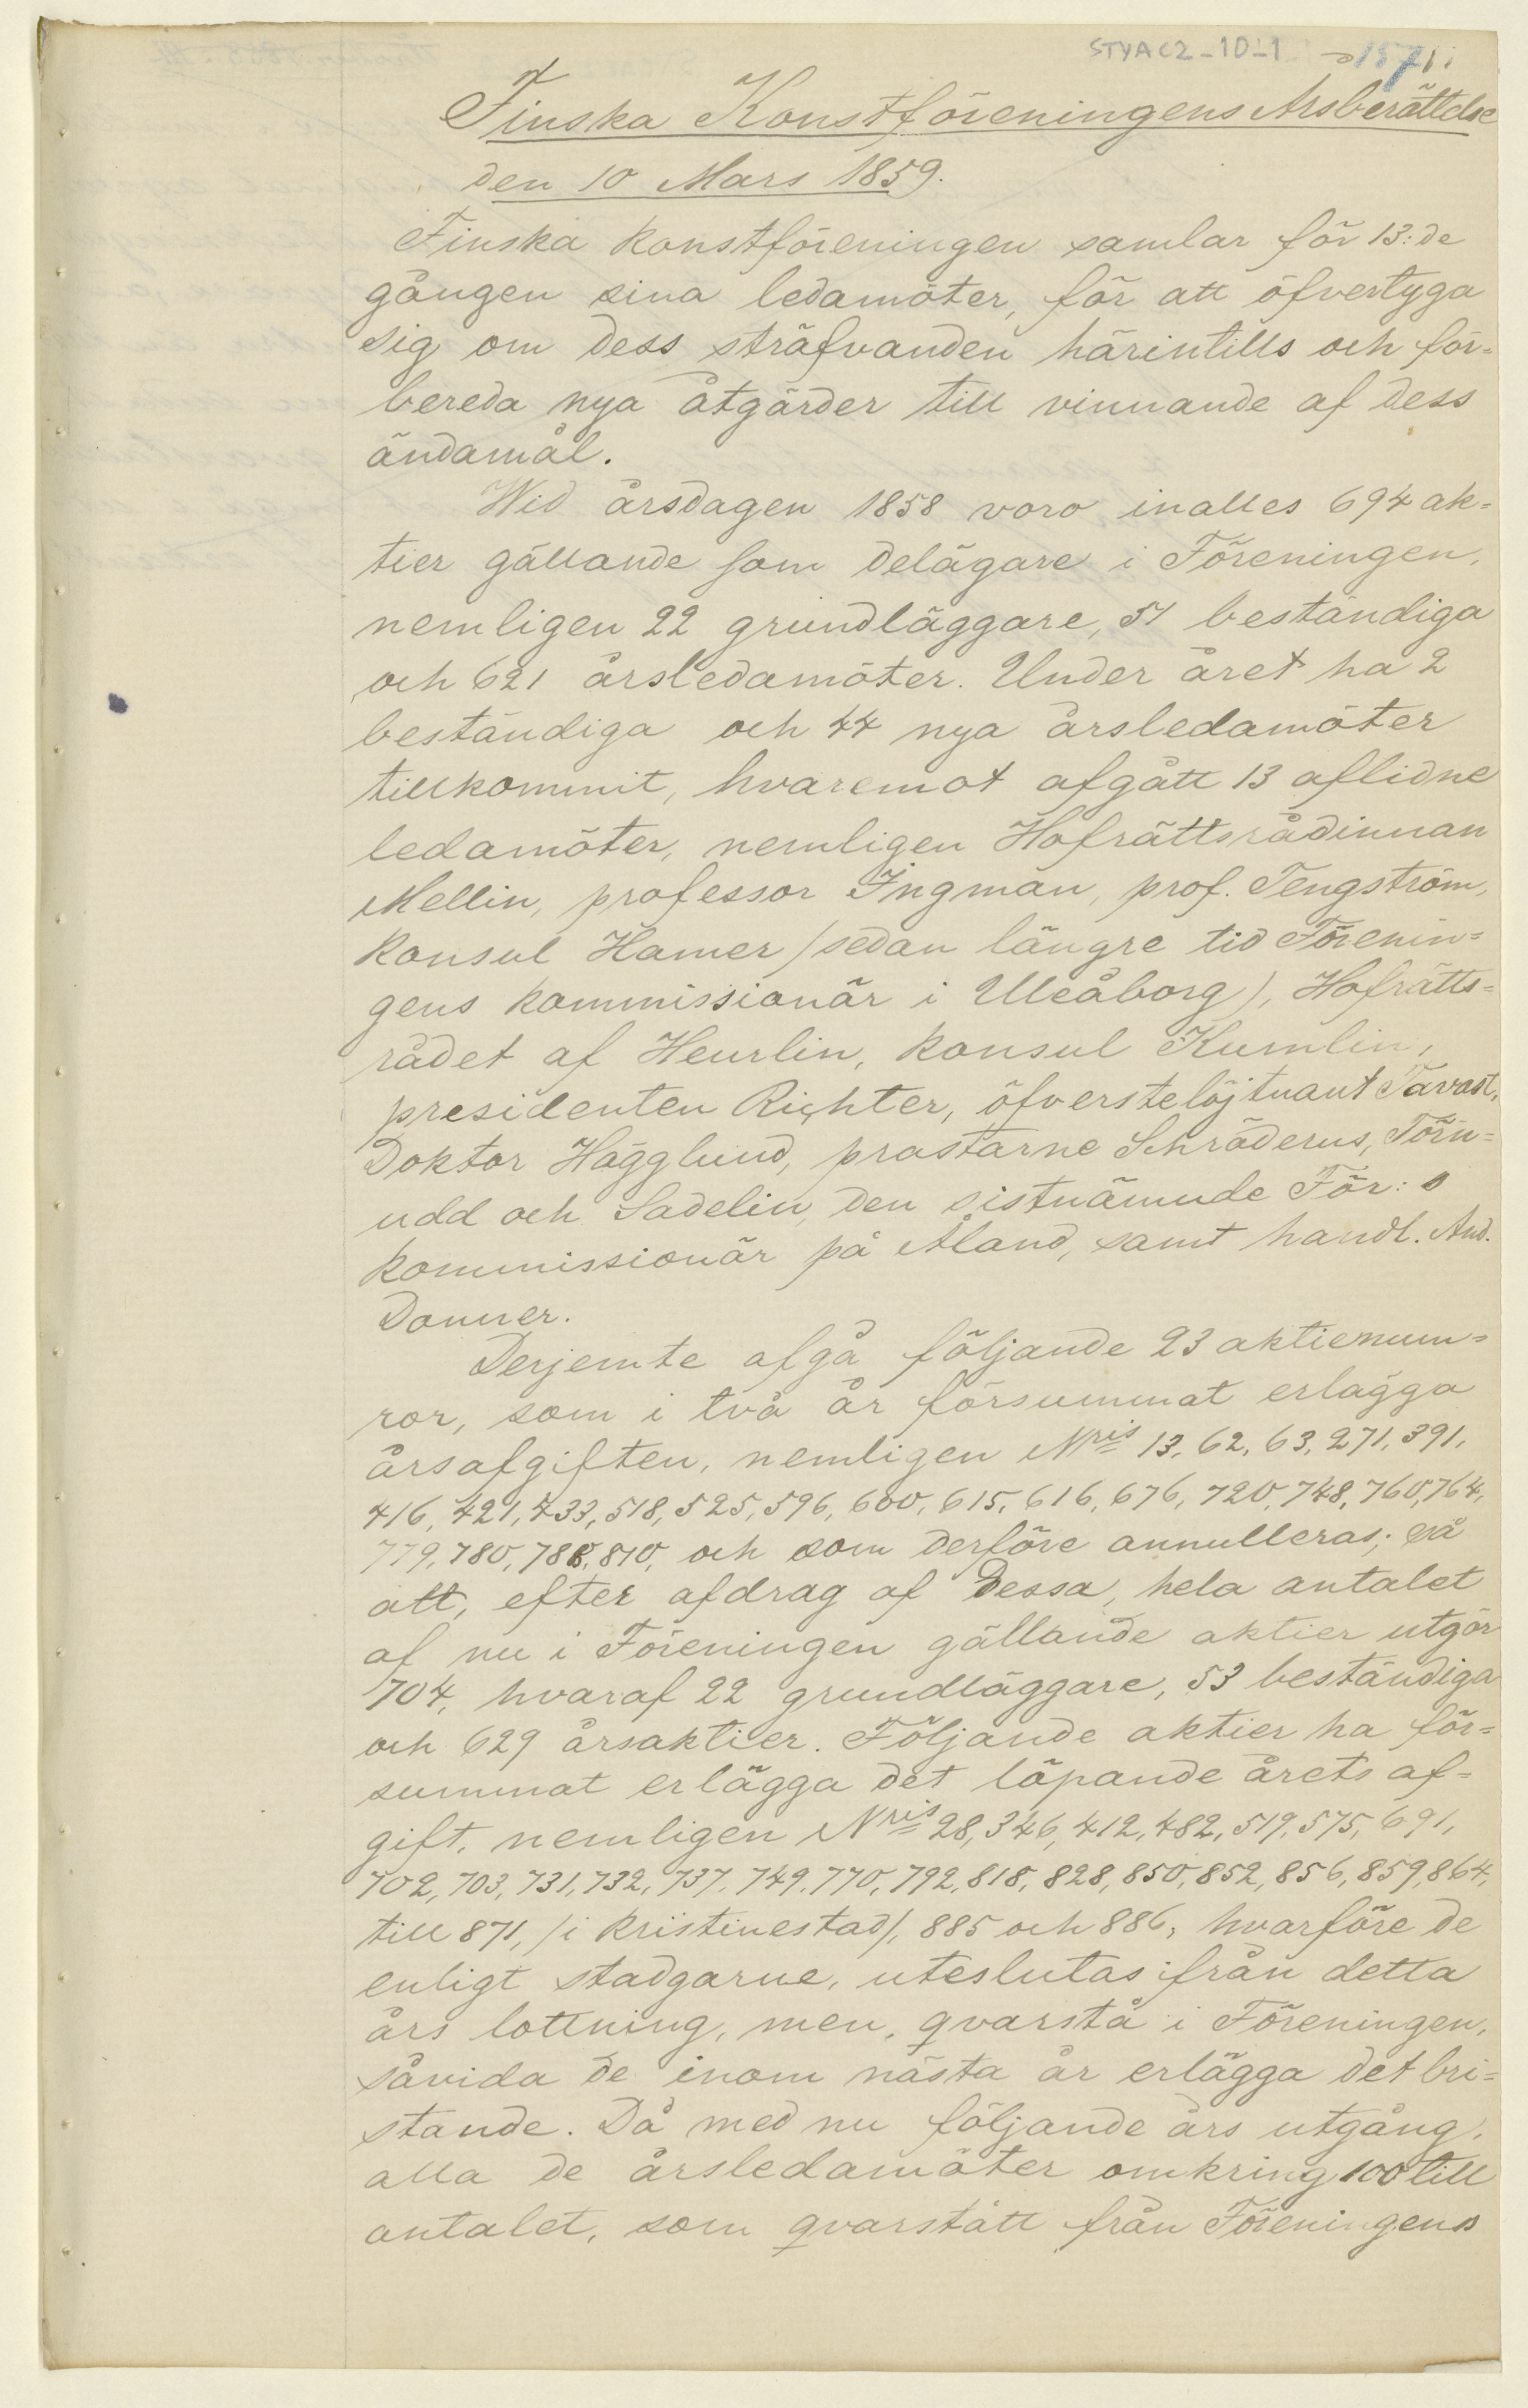 STYAC2_10_1 1571
Finska Konstföreningens Årsberättelse
den 10 Mars 1859.
Finska konstföreningen samlar för 13:de
gången sina ledamöter, för att öfvertyga
sig om dess sträfvanden härintills och för=
bereda nya åtgärder till vinnande af dess
ändamål.
Wid årsdagen 1858 voro inalles 694 ak=
tier gällande som delägare i Föreningen,
nemligen 22 grundläggare, 51 beständiga
och 621 årsledamöter. Under året ha 2
beständiga och 44 nya årsledamöter
tillkommit, hvaremot afgått 13 aflidne
ledamöter, nemligen Hofrättsrådinnan
Mellin, professor Ingman, prof. Tengström,
konsul Hamer /sedan längre tid Förenin=
gens kommissionär i Uleåborg), Hofrätts=
rådet af Heurlin, konsul Kumlin,
presidenten Richter, öfverstelöjtnant Tavast,
Doktor Hägglund, prostarne Schröderus, Törn=
udd och Sadelin, den sistnämnde För:s
kommissionär på Åland, samt handl. And.
Donner.
Derjemte afgå följande 23 aktienum=
ror, som i två år försummat erlägga
årsafgiften, nemligen Nris 13, 62, 63, 271, 391,
416, 421, 433, 518, 525, 596, 600, 615, 616, 676, 720, 748, 760, 764,
779, 780, 788, 810, och som derföre annulleras; så
att, efter afdrag af dessa, hela antalet
af nu i Föreningen gällande aktier utgör
704, hvaraf 22 grundläggare, 53 beständiga
och 629 årsaktier. Följande aktier ha för=
summat erlägga det löpande årets af=
gift, nemligen Nris 28, 346, 412, 482, 519, 575, 691,
702, 703, 731, 732, 737, 749, 770, 792, 818, 828, 850, 852, 856, 859, 864,
till 871, /i Kristinestad/, 885 och 886, hvarföre de
enligt stadgarne, uteslutas ifrån detta
års lottning, men, qvarstå i Föreningen,
såvida de inom nästa år erlägga det bri=
stande. Då med nu följande års utgång,
alla de årsledamöter omkring 100 till
antalet, som qvarstått från Föreningens